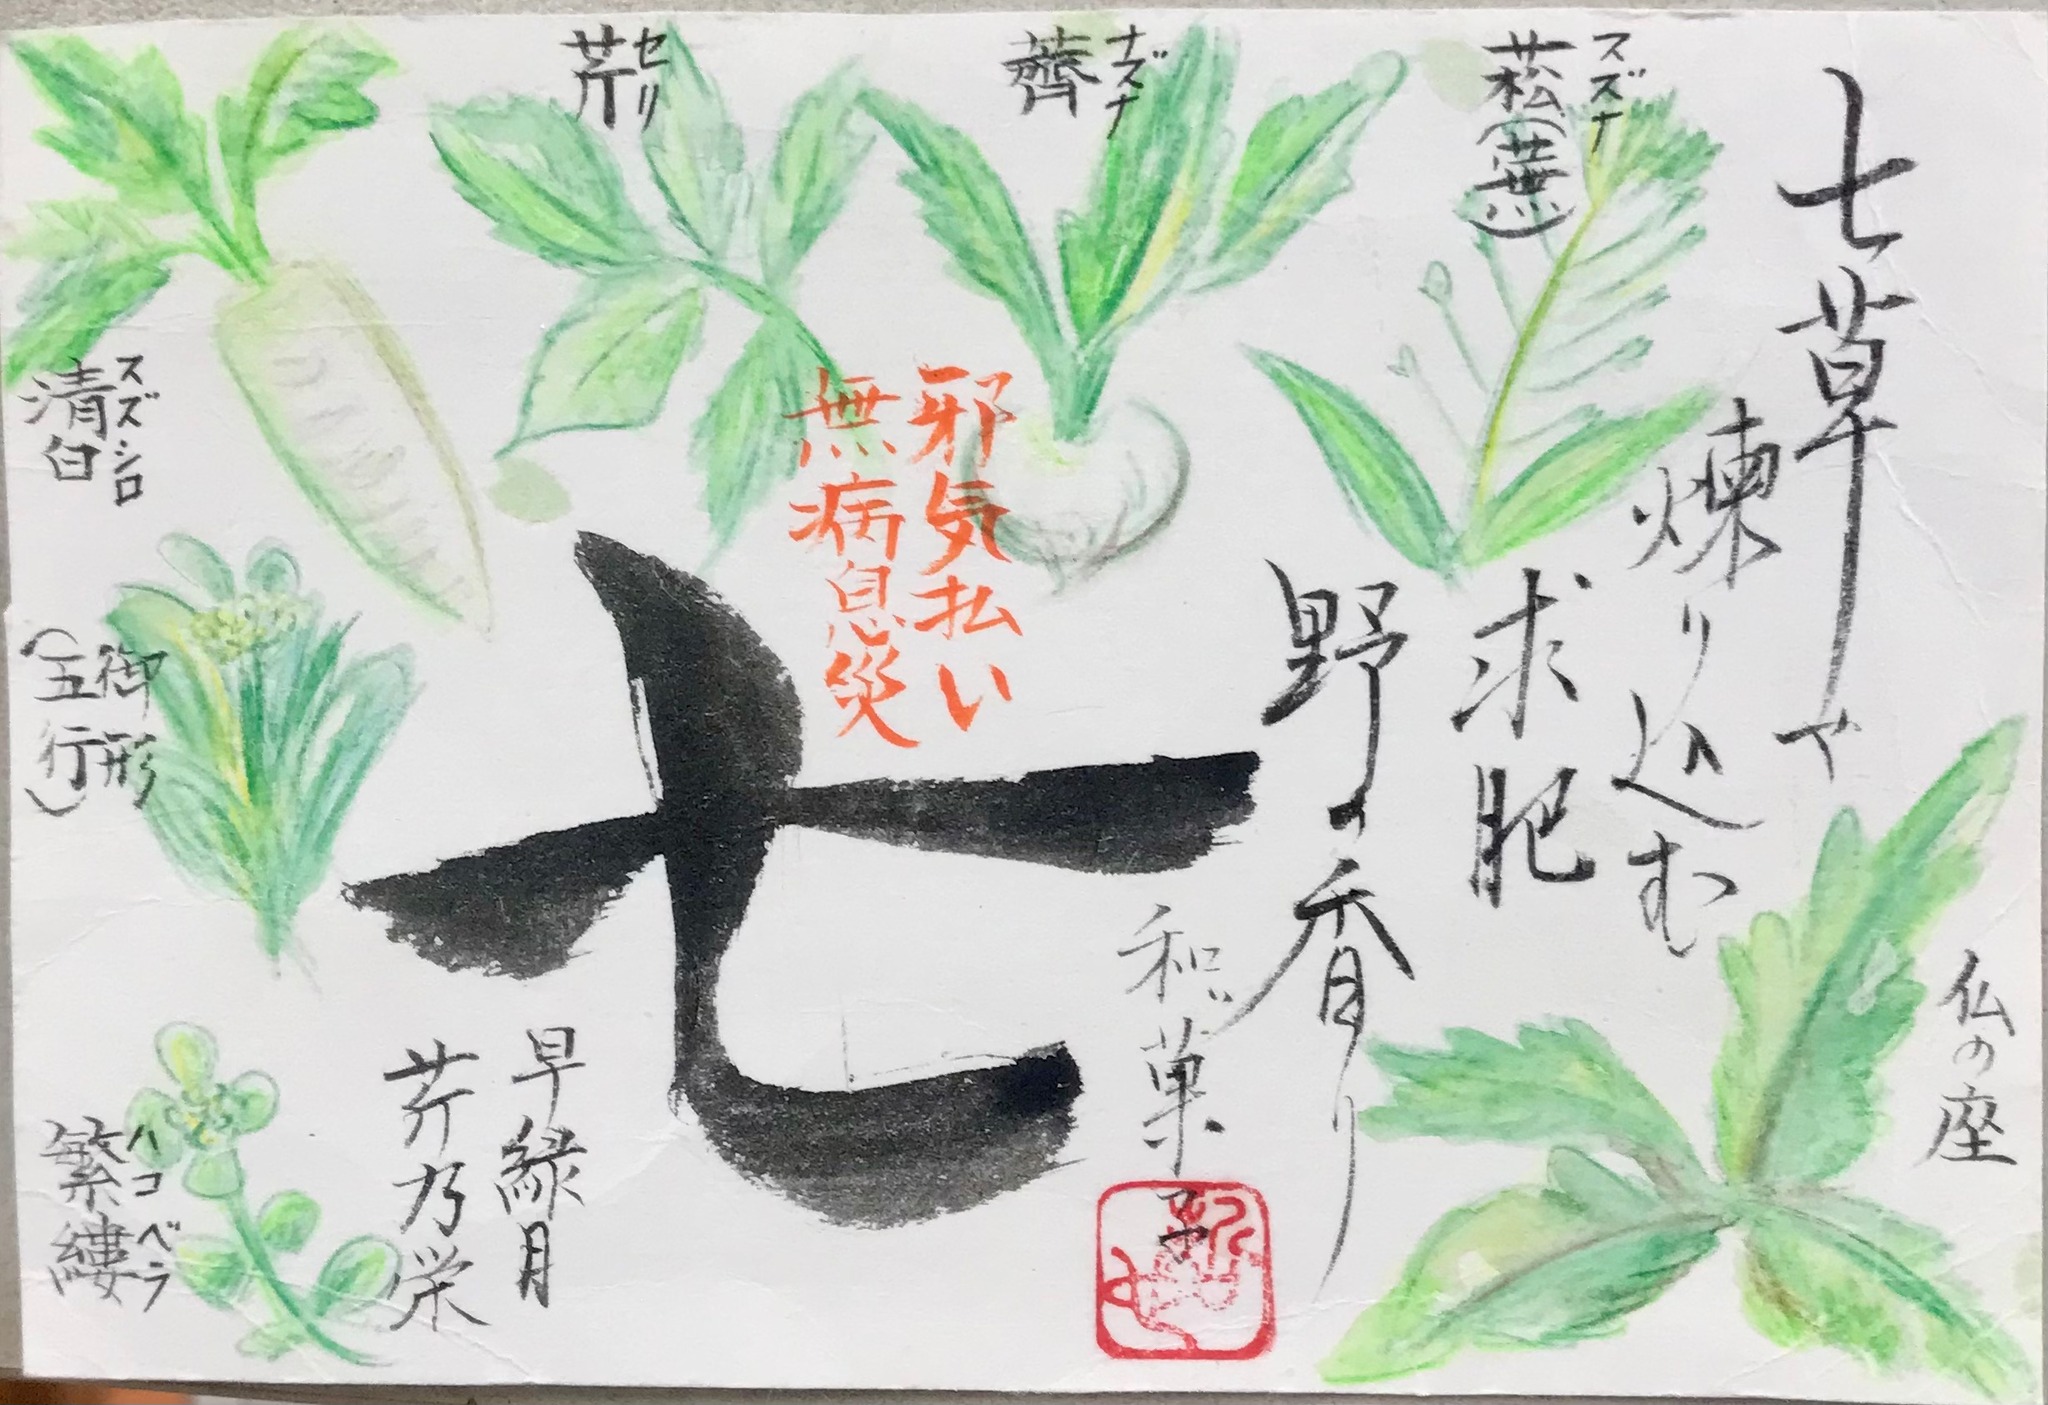 七草で
煉り込む
求肥
野の香り
和菓子
スズナ
菘(蕪)
ナズナ
薺
セリ
芹
スズシロ
清白
御形
(五行)
ハコベラ
繁縷
仏の座
邪気払い
無病息災
七
早緑月
芹乃栄